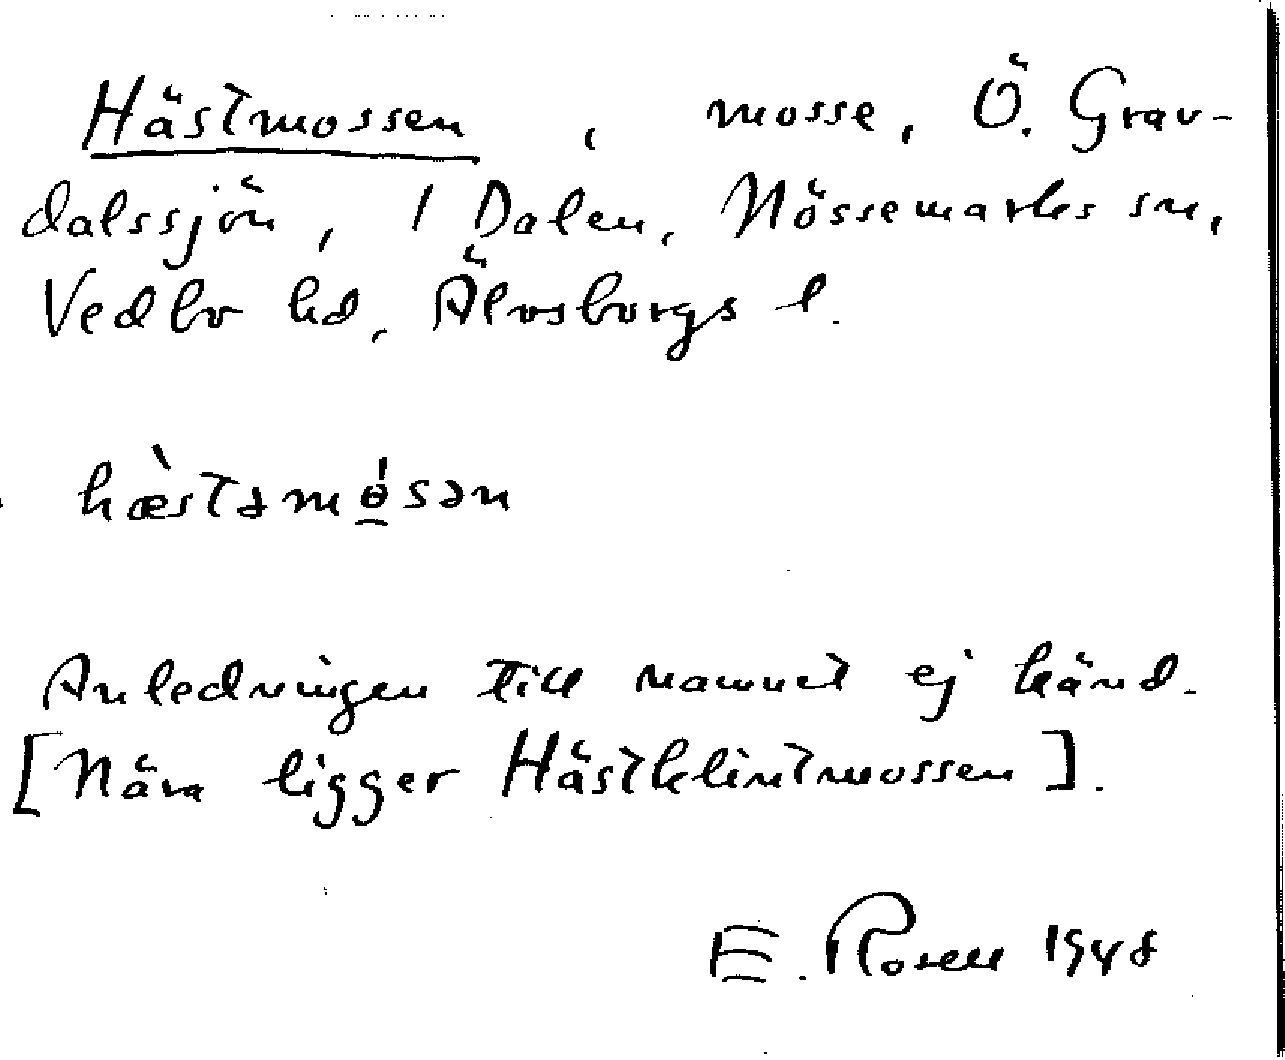 Hästmossen, mosse, Ö. Grav-
dalssjön, 1 Dalen, Nössemarks sn,
Vedbo hd, Älvsborgs l.
hæ̀stamɵ̲́sən
Anledningen till namnet ej känd.
[Nära ligger Hästklintmossen].
E. Rosell 1948